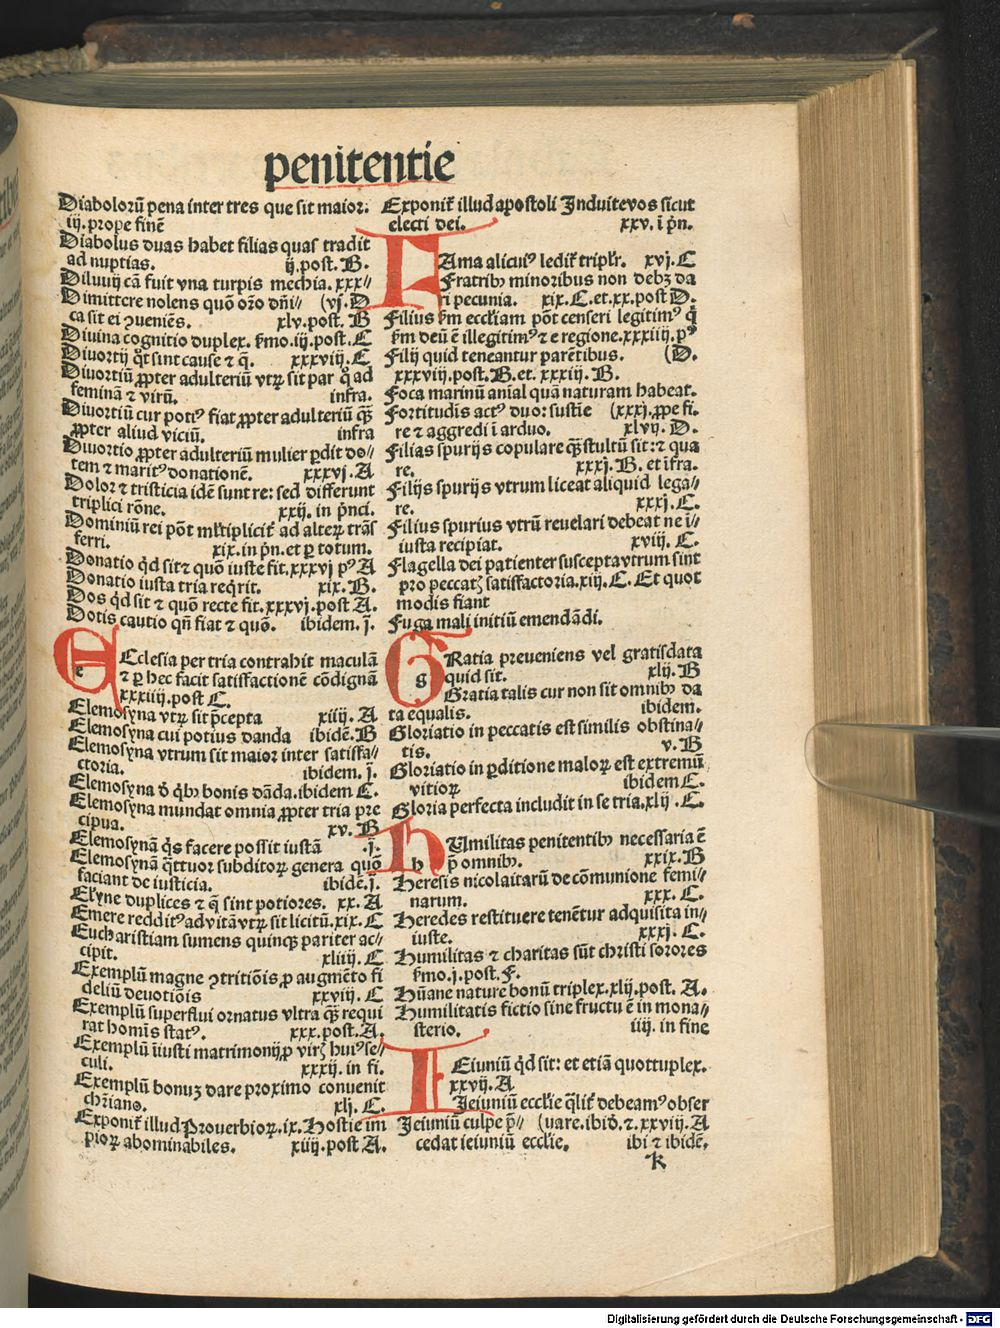 penitentie
Diabolorū pena inter tres que sit maior.
iij. prope finē
Diabolus duas habet filias quas tradit
ad nuptias. ij. post. B.
Diluuij cā fuit vna turpis mechia. xxx//
Dimittere nolens quō oꝛo dn̄i// (vj. D
ca sit ei ꝯueniēs. xlv. post. B
Diuina cognitio duplex. ẜmo. iij. post. C
Diuortij q̄t sint cause ⁊ q̄. xxxviij. C
Diuortiū ꝓpter adulteriū vtꝝ sit par qͦ ad
feminā ⁊ virū. infra.
Diuortiū cur potiꝰ fiat ꝓpter adulteriū qꝫ̄
ꝓpter aliud viciū. infra
Diuortio ꝓpter adulteriū mulier ꝑdit do//
tem ⁊ maritꝰ donationē. xxxvj. A
Dolor ⁊ tristicia idē sunt re: sed differunt
triplici rōne. xxij. in pn̄ci.
Dominiū rei pōt ml̄tiplicit̄ ad alteꝝ trās
ferri. xix. in pn̄. et ꝑ totum.
Donatio qd̄ sit ⁊ quō iuste fit. xxxvj pꝰ A
Donatio iusta tria req̄rit. xix. B.
Dos qd̄ sit ⁊ quō recte fit. xxxvj. post A.
Dotis cautio qn̄ fiat ⁊ quō. ibidem. j.
e
Ecclesia per tria contrahit maculā
⁊ ꝑ hec facit satisfactionē cōdignā
xxxiiij. post C.
Elemosyna vtꝝ sit p̄cepta xiiij. A
Elemosyna cui potius danda ibidē. B
Elemosyna vtrum sit maior inter satisfa//
ctoria. ibidem. j.
Elemosyna d̄ qͥbꝰ bonis dāda. ibidem C.
Elemosyna mundat omnia ꝓpter tria pre
cipua. xv. B
Elemosynā q̄s facere possit iustā .j.
Elemosynā q̄ttuor subditoꝝ genera quō
faciant de iusticia. ibidē. j.
Elȳne duplices ⁊ q̄ sint potiores. xx. A
Emere redditꝰ ad vitā vtꝝ sit licitū. xix. C
Eucharistiam sumens quinqꝫ pariter ac//
cipit. xliiij. C
Exemplū magne ꝯtritiōis ꝓ augmēto fi
deliū deuotiōis xxviij. C
Exemplū superflui ornatus vltra qꝫ̄ requi
rat homīs statꝰ. xxx. post. A.
Exemplū iniusti matrimonij ꝓ virꝫ huiꝰ se//
culi. xxxij. in fi.
Exemplū bonuꝫ dare proximo conuenit
chr̄iano. xlj. C.
Exponit̄ illud Prouerbioꝝ. ix. Hostie im
pioꝝ abominabiles. xiiij. post A.
Exponit̄ illud apostoli Induite vos sicut
electi dei. xxv. ī pn̄.
Fama alicuiꝰ ledit̄ triplr̄. xvj. C
Fratribꝰ minoribus non debꝫ da
ri pecunia. xix. C. et. xx. post D.
Filius ẜm eccl̄iam pōt censeri legitimꝰ q̄
ẜm deū ē illegitimꝰ ⁊ e regione. xxxiiij. pꝰ
Filij quid teneantur parētibus. (D.
xxxviij. post. B. et. xxxiij. B.
Foca marinū aīal quā naturam habeat.
Fortitudīs actꝰ duo: sustīe (xxxj. ꝓpe fi.
re ⁊ aggredi ī arduo. xlvij. D.
Filias spurijs copulare qꝫ̄ stultū sit: ⁊ qua
re. xxxj. B. et īfra.
Filijs spurijs vtrum liceat aliquid lega//
re. xxxj. C.
Filius spurius vtrū reuelari debeat ne ī//
iusta recipiat. xviij. C.
Flagella dei patienter suscepta vtrum sint
pro peccatꝫ satisfactoria. xiij. C. Et quot
modis fiant
Fuga mali initiū emendādi.
g
Gratia preueniens vel gratis data
quid sit. xlij. B
Gratia talis cur non sit omnibꝰ da
ta equalis. ibidem.
Gloriatio in peccatis est similis obstina//
tis. v. B
Gloriatio in ꝑditione maloꝝ est extremū
vitioꝝ ibidem C.
Gloria perfecta includit in se tria. xlij. C.
h
Humilitas penitentibꝰ necessaria ē
p̄ omnibꝰ. xxix. B
Heresis nicolaitarū de cōmunione femi//
narum. xxx. C.
Heredes restituere tenētur adquisita in//
iuste. xxxj. C.
Humilitas ⁊ charitas sūt christi sorores
ẜmo. j. post. F.
Hūane nature bonū triplex. xlij. post. A.
Humilitatis fictio sine fructu ē in mona//
sterio. iiij. in fine
Ieiuniū qd̄ sit: et etiā quottuplex.
xxvij. A
Ieiuniū eccl̄ie ql̄it̄ debeamꝰ obser
Ieiuniū culpe p̄// (uare. ibid̄. ⁊. xxvij. A
cedat ieiuniū eccl̄ie. ibi ⁊ ibidē.
k
Digitalisierung gefördert durch die Deutsche Forschungsgemeinschaft - DFG